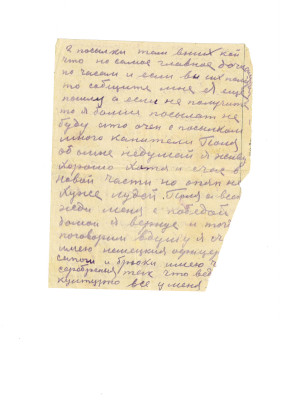 я посылки там выших кой
что но самое главное дочке
по часам и если вы их полу
то сообщите мне я еще
пошлю а если не получите
то я больше посылать не
буду ето очен с посылкой
много канители Поля
обо мне недумай я живу
хорошо хотя и счас в
новой части но опят не
хуже людей. Поля и все
жди меня с победой
домой я вернус и тог
поговорим вдушу я сч
имею немецкия офицер
сапоги и брюки имею ч
серебреня так что вед
културно все у меня